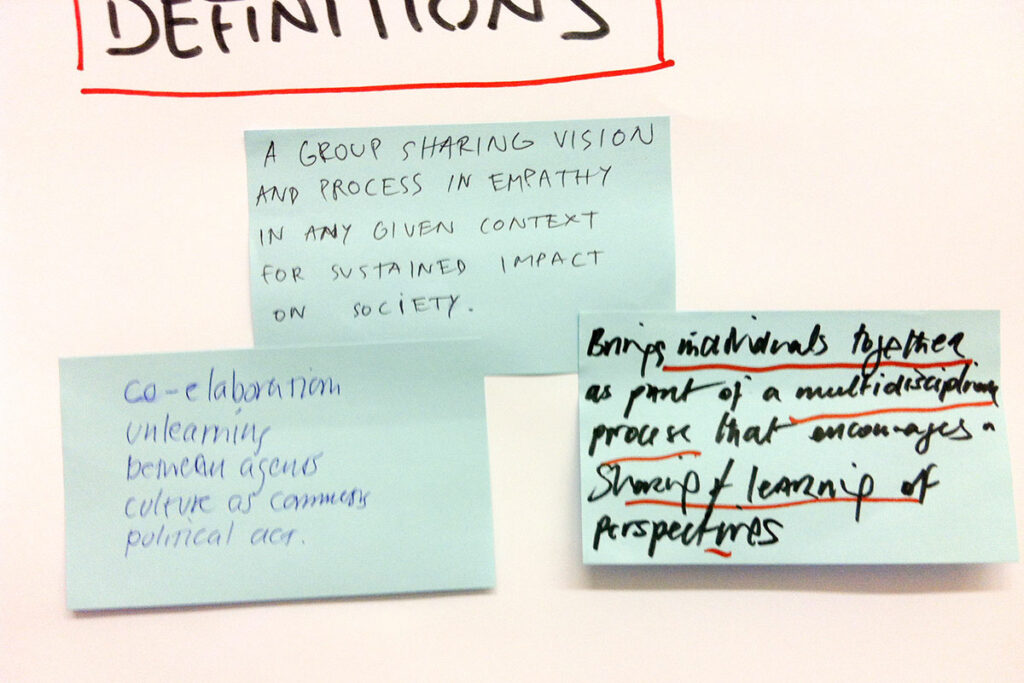 DEFINITIONS
A GROUP SHARING VISION
AND PROCESS IN EMPATHY
IN ANY GIVEN CONTEXT
FOR SUSTAINED IMPACT
ON SOCIETY.
co-elaboration
unlearning
between agents
culture as commons
political act.
Brings individuals together
as part of a multidisciplinary
process that encourages a
Sharing & learning of
perspectives